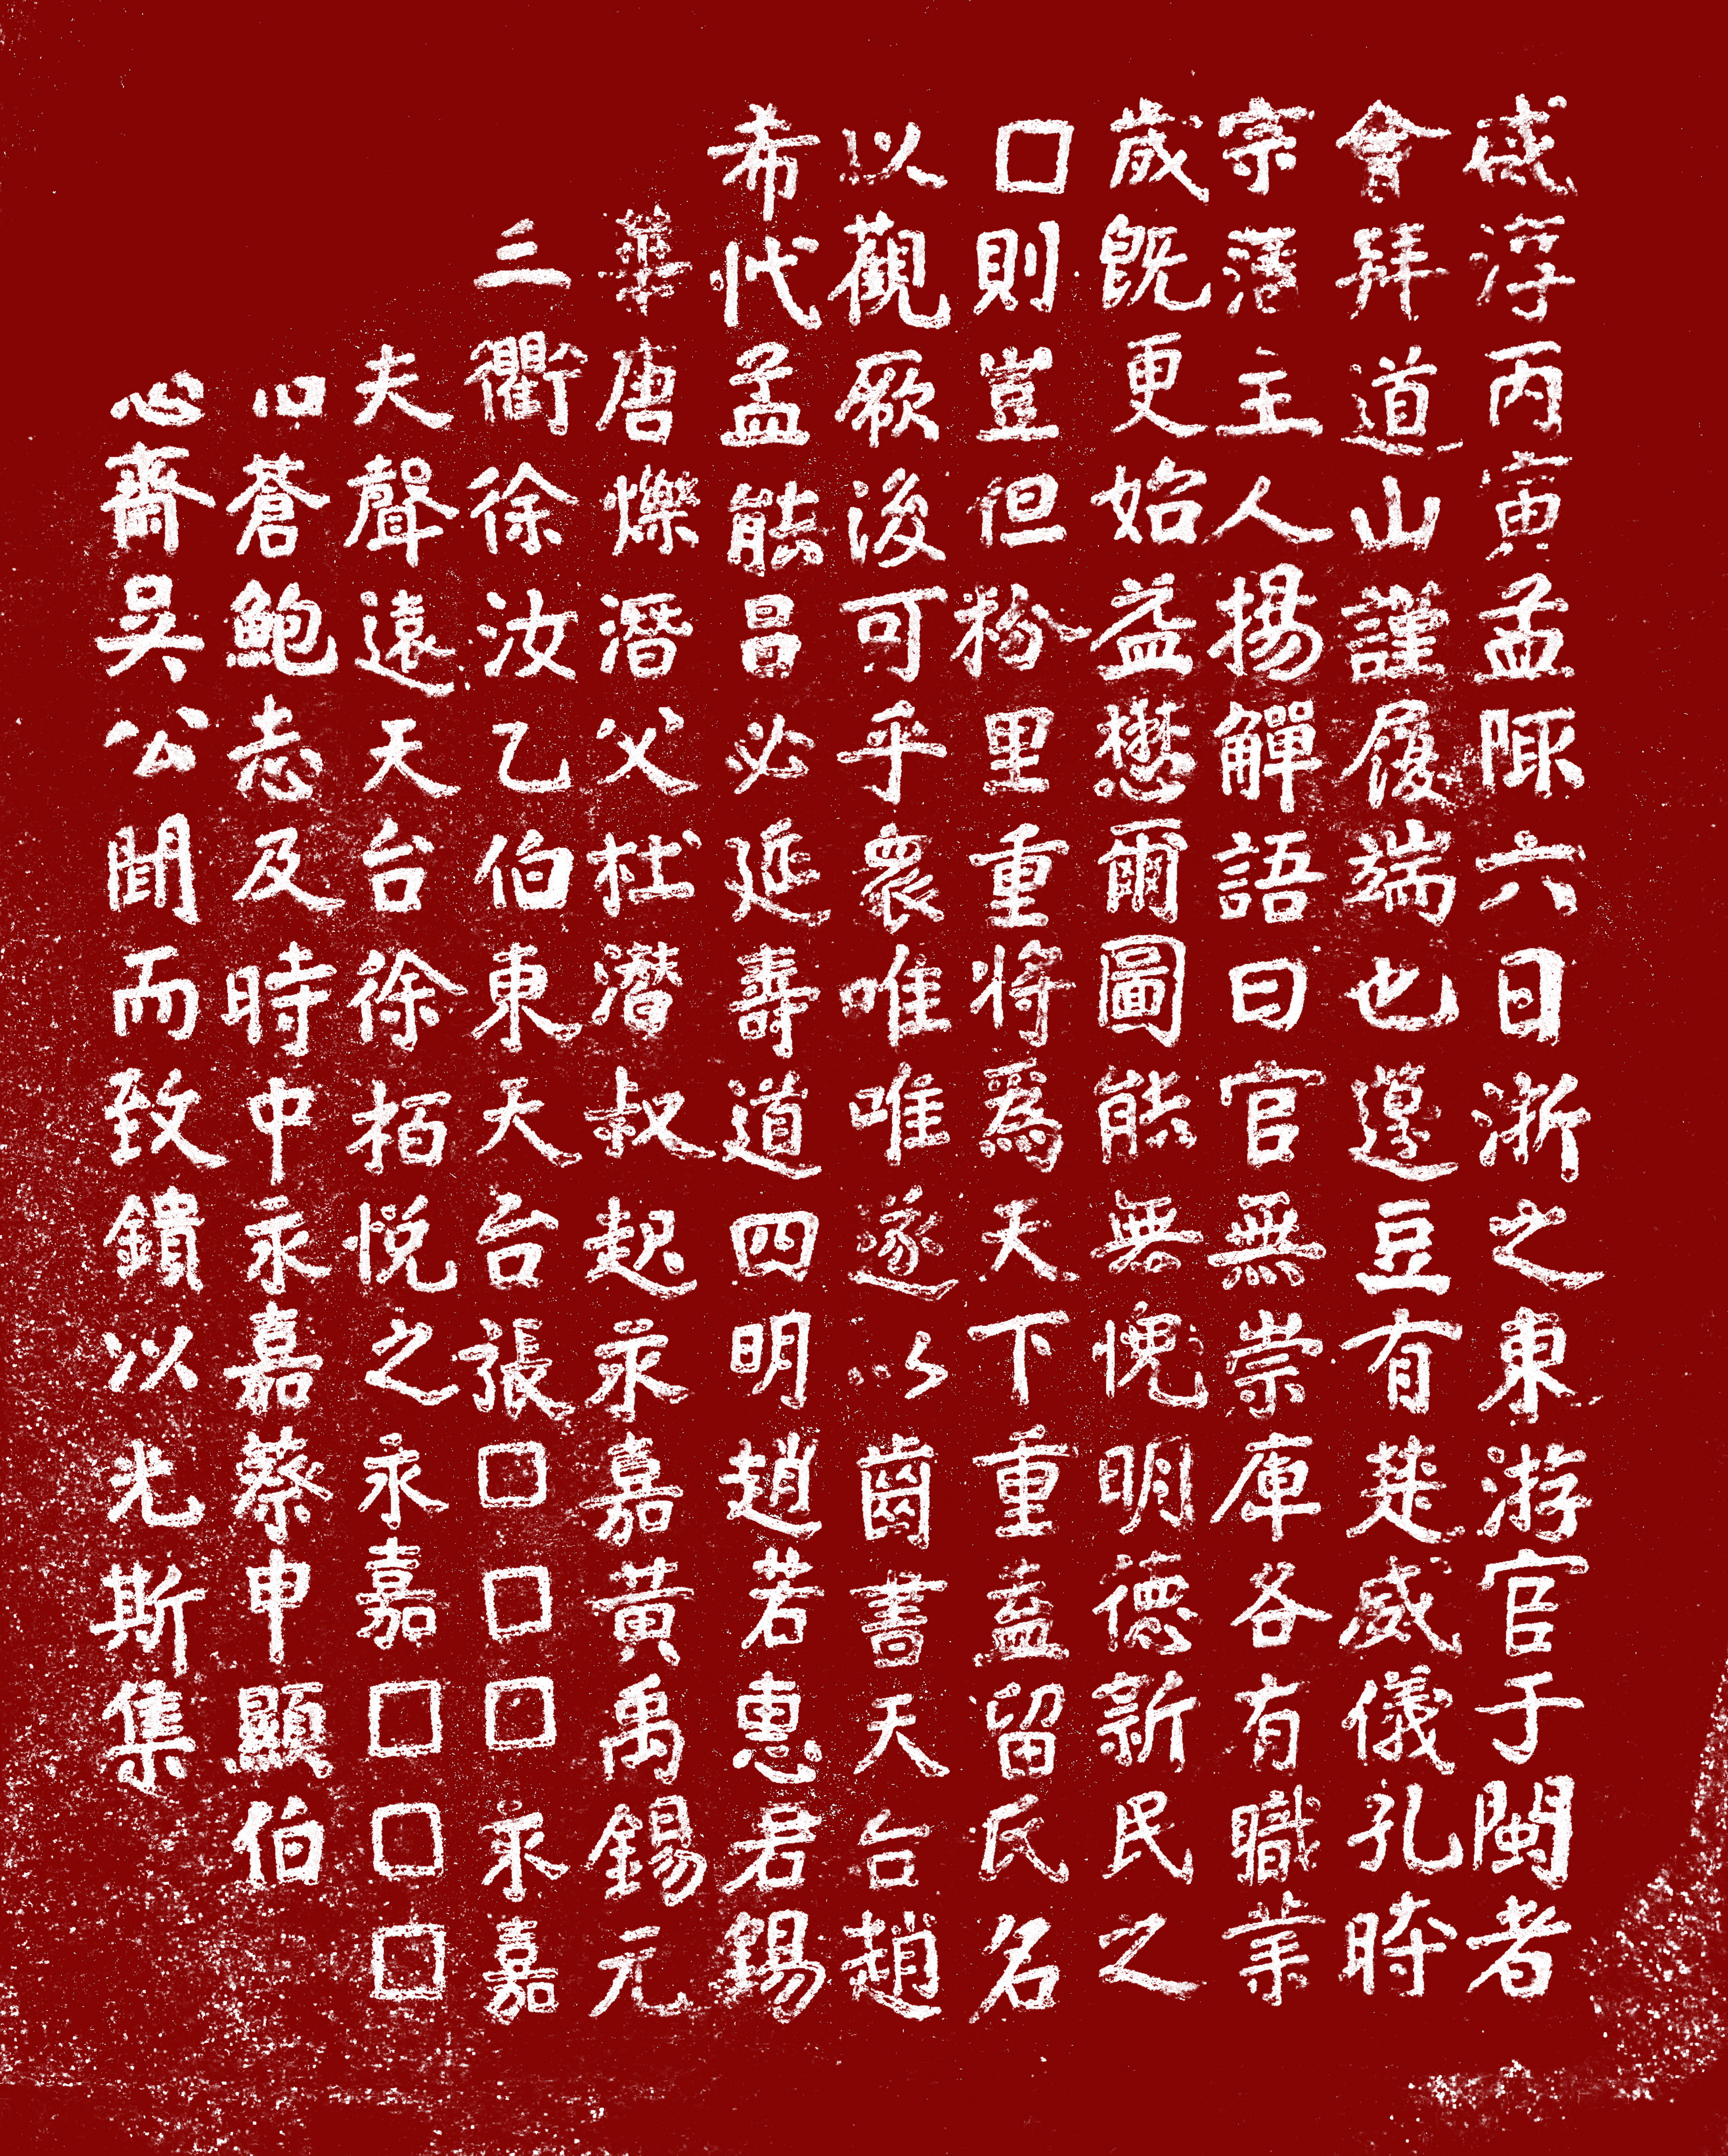 咸淳丙寅孟陬六日浙之東游宦于閩者
會拜道山謹履端也籩豆有楚威儀孔時
宗蒲主人揚觶語曰官無崇庳各有職業
歲既更始益懋爾圖能無愧明德新民之
□則豈但粉里重將爲天下重盍留氏名
以觀厥後可乎衆唯唯遂以齒書天台趙
希代孟能昌必延壽道四明趙若惠君錫
華唐爍潛父杜濳叔起永嘉黃禹錫元
三衢徐汝乙伯東天台張□□□永嘉
夫聲遠天台徐栢悅之永嘉□□□
心蒼鮑志及時中永嘉蔡申顯伯
心齋吳公聞而致鐀以光斯集